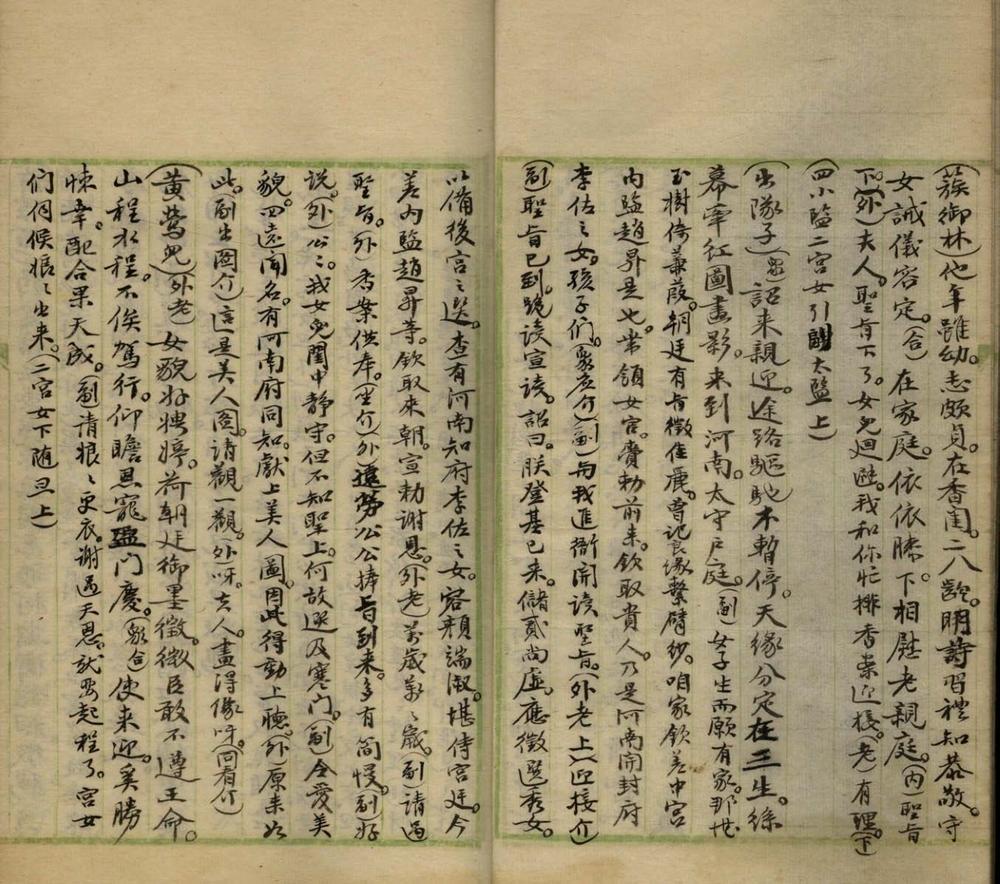 (簇御林)他年雖幼。志頗貞。在香閨。二八齡。明詩習禮知恭敬。守
女誡儀容定。(合)在家庭。依依膝下相慰老親庭。(內)聖旨
下。(外)夫人。聖旨下了。女兒迴避。我和你忙排香案迎接。(老)有理(下)
(四小監二宮女引太監上)
(出隊子)(眾)詔來親迎。途路驅馳不暫停。天緣分定在三生。絲
幕牽紅圖畫影。来到河南。太守戶庭。(副)女子生而願有家。那世
玉樹倚蒹葭。朝廷有旨徵佳麗。曾記良緣繫臂紗。咱家欽差中宮
內監趙昇是也。帶領女官。賫勅前来。欽取貴人。乃是河南開封府
李佐之女。孩子們。(眾應介)(副)與我進衙開讀聖旨。(外老上)(迎接介)
(副)聖旨已到。跪讀宣讀。詔曰。朕登基已来。儲貳尚虛。應徵選秀女。
以備後宮之選。查有河南知府李佐之女。容顏端淑。堪侍宮廷。今
差內監趙昇等。欽取來朝。宣勅謝恩。(外老)萬歲萬々歲。(副)請過
聖旨。(外)香案供奉。(坐介)(外)遠勞公公捧旨到来。多有簡慢。(副)好
說。(外)公公。我女兒閨中静守。但不知聖上。何故選及寒门。(副)令愛美
貌。四遠聞名。有河南府同知獻上美人圖。因此得動上聽。(外)原来如
此。(副出圖介)這是美人圖。請觀一觀。(外)呀。夫人。畫得像呀。(同看介)
(黃鶯兒)(外老)女貌好娉婷。荷朝廷御墨徵。微臣敢不遵王命。
山程水程。不俟駕行。仰瞻恩寵盈门慶。(眾合)使来迎。奚勝
悚幸。配合果天成。(副)請娘々更衣。謝過天恩。就要起程了。宮女
们伺候娘々出来。(二宮女下随旦上)